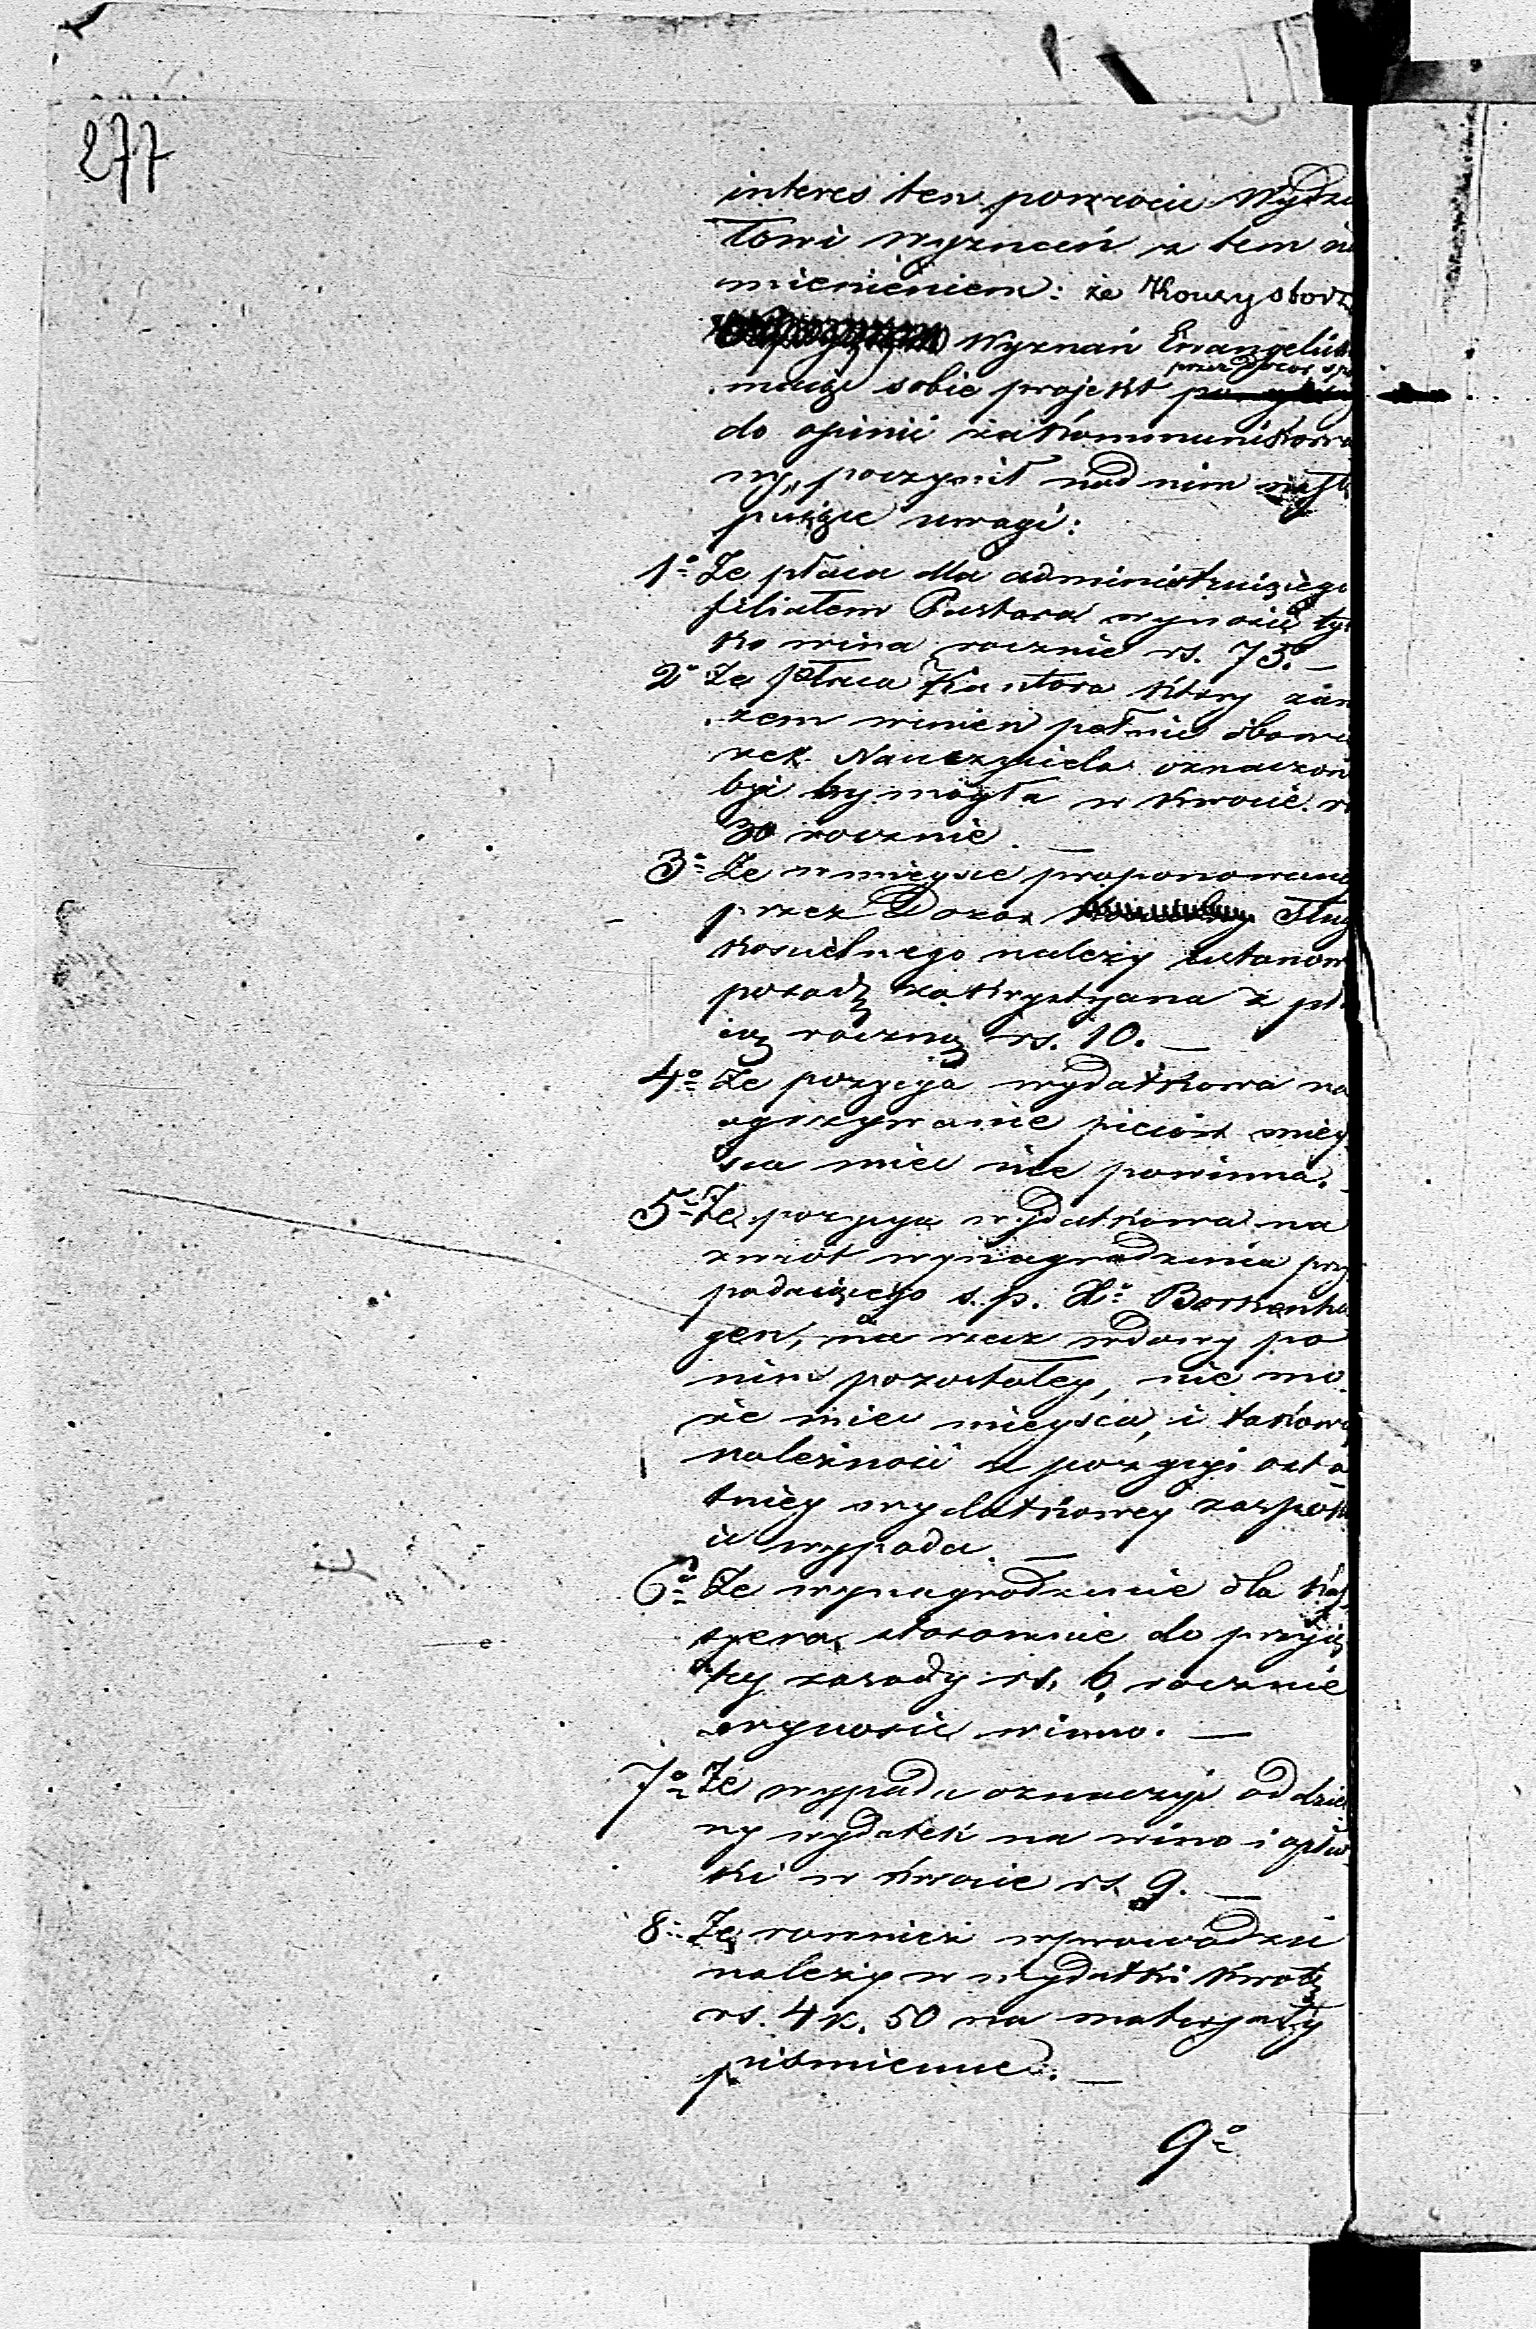 277
interes ten powrocić Wydzia
łowi wyznań z tem na
mienieniem: że Konsystorz
Wyznań Ewangelick
maiąc sobie projekt przez Dozor
do opinii zakommunikowa
ny, poczynił nad nim nastę
puiące uwagi:
1º Że płaca dla administruiącego
filiałem Pastora wynosić tyl
ko winna rocznie rs. 75.—
2º Że płaca Kantora który zara
zem winien pełnić obowią
zek Nauczyciela oznaczon
być by mogła w kwocie r
30 rocznie. —
3º Że w miejsce proponowane
przez Dozor Sług
kościelnego należy ustanow
posadę zakrystyana z pła
cą roczną rs. 10. —
4º Że pozycya wydatkowa na
ogrzywanie piecion miey
sca mieć nie powinna.
5º Że pozycya wydatkowa na
zwrot wynagrodzenia przy
padaiącego s. p. Xº Borkenha
gen, na rzecz wdowy po
nim pozostałey, nie mo
że mieć mieysca, i takowa
należność z pozycyi osta
tniey wydatkowey zaspoko
ić wypada. —
6º Że wynagrodzenie dla Kas
syera, stosownie do przyię
tey zasady rs. 6, rocznie
wynosić winno. —
7º Że wypada oznaczyć oddziel
ny wydatek na wino i opłat
ki w kwocie rs. 9. —
8º Że rownież wprowadzić
należy w wydatki kwotę
rs. 4 k. 50 na materyały
piśmienne. —
9º